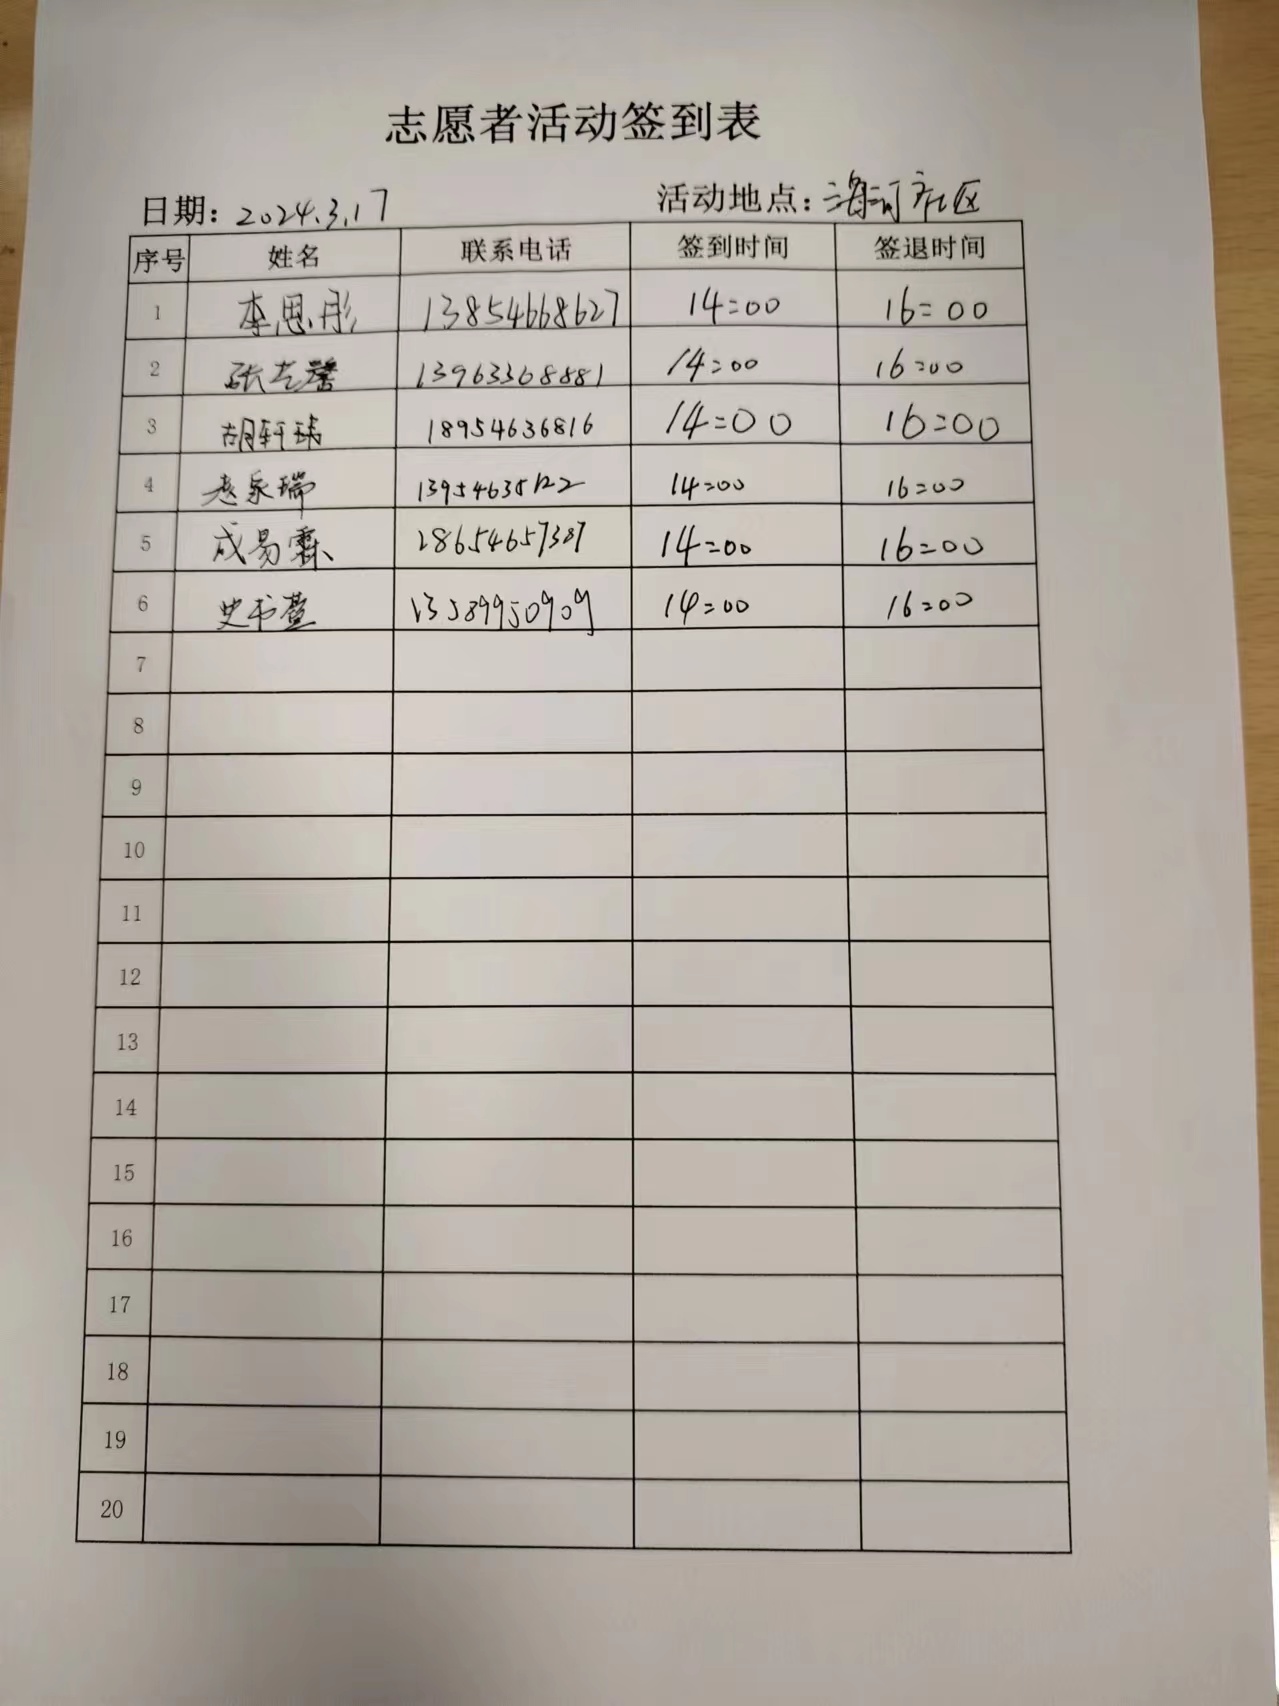 志愿者活动签到表
日期: 2024.3.17 活动地点: 海河社区
序号 姓名 联系电话 签到时间 签退时间
1 李思彤 13854668627 14:00 16:00
2 张志馨 13963368881 14:00 16:00
3 胡轩瑀 18954636816 14:00 16:00
4 赵家瑞 14:00 16:00
5 成易霖 18654657387 14:00 16:00
6 史书萱 13589950909 14:00 16:00
7
8
9
10
11
12
13
14
15
16
17
18
19
20